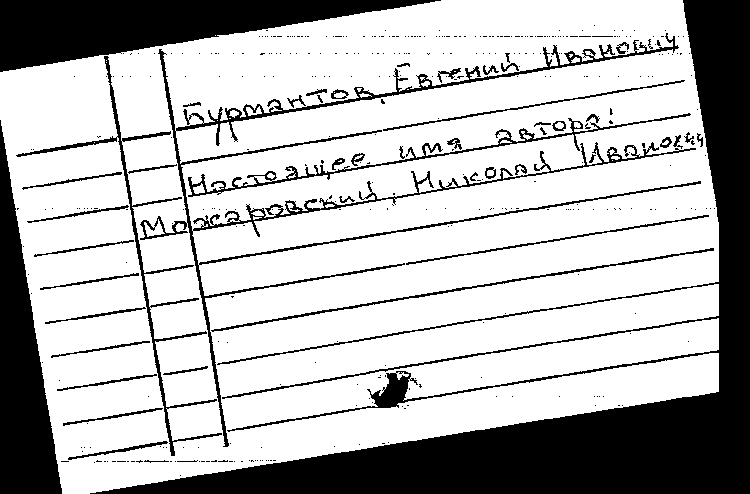 Бурмантов, Евгений Иванович
Настоящее имя автора:
Можаровский, Николай Иванович